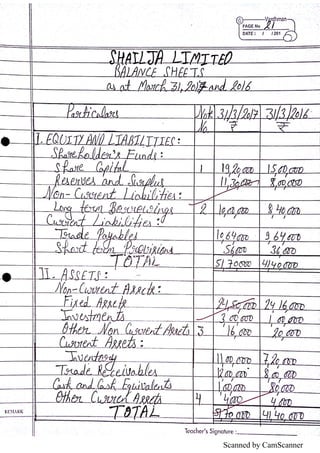 Vardhman
PAGE No. 21
DATE : / / 201
SHAILJA LIMITED
BALANCE SHEETS
as at March 31, 2017 and 2016
Particulars Note No. 31/3/2017 ₹ 31/3/2016 ₹
I. EQUITY AND LIABILITIES:
Shareholder's Funds:
Share Capital 1 19,20,000 15,00,000
Reserves and Surplus 11,30,000 8,00,000
Non-Current Liabilities:
Long term Borrowings 2 10,00,000 8,40,000
Current Liabilities:
Trade Payables 10,64,000 9,64,000
Short term Provisions 56000 36,000
TOTAL 51,70000 4140,000
II. ASSETS:
Non-Current Assets:
Fixed Assets 24,50,000 24,16,000
Investments 3,00,000 1,00,000
Other Non Current Assets 3 16,000 20,000
Current Assets:
Inventory 11,00,000 7,20,000
Trade Receivables 12,00,000 8,00,000
Cash and Cash Equivalents 1,00,000 80,000
Other Current Assets 4 4,000 4,000
TOTAL 51,70,000 41,40,000
REMARK
Teacher's Signature :
Scanned by CamScanner